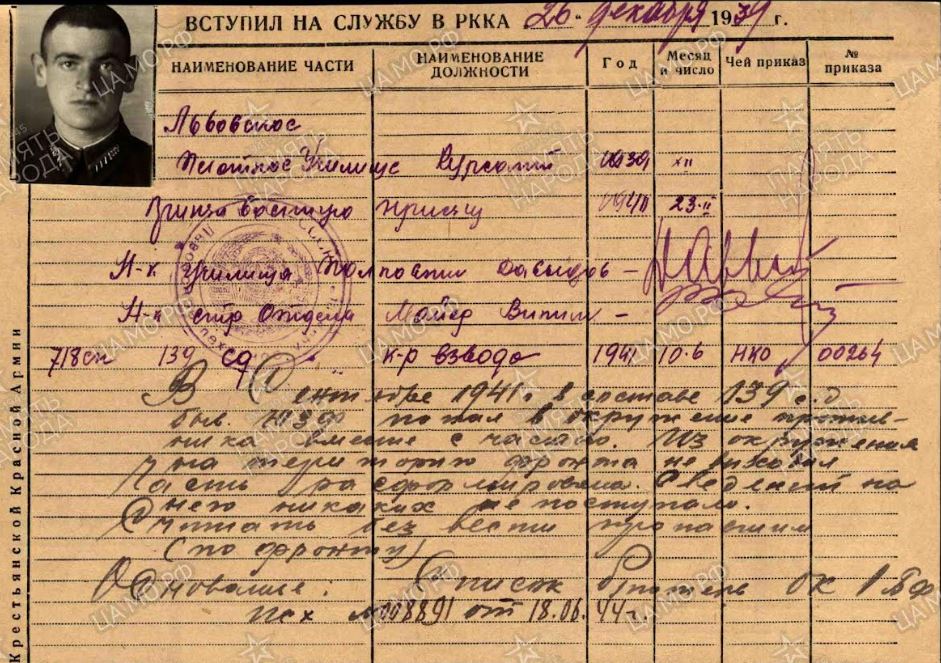 ВСТУПИЛ НА СЛУЖБУ В РККА 26 декабря 1939 г.
НАИМЕНОВАНИЕ ЧАСТИ НАИМЕНОВАНИЕ ДОЛЖНОСТИ Год Месяц и число Чей приказ № приказа
Львовское
Пехотное Училище Курсант 1939 XII
Принял военную присягу 1940 23-II
Н-к Училища Полковник Давыдов –
Н-к стр Отдела Майор –
718 сп 139 сд к-р взвода 1941 10.6 НКО 00264
В Сентябре 1941 г. в составе 139 с.д
быв. ЮЗФ попал в окружение против-
ника вместе с частью. Из окружения
на территорию фронта не
Часть расформирована. Сведений на
него никаких не поступало.
Считать без вести пропавшим
(по фронту)
Основание: Список ОК 1 Бф
исх №008891 от 18.06.44 г.
Крестьянской Красной Армии
ЦАМО.РФ
ПАМЯТЬ НАРОДА